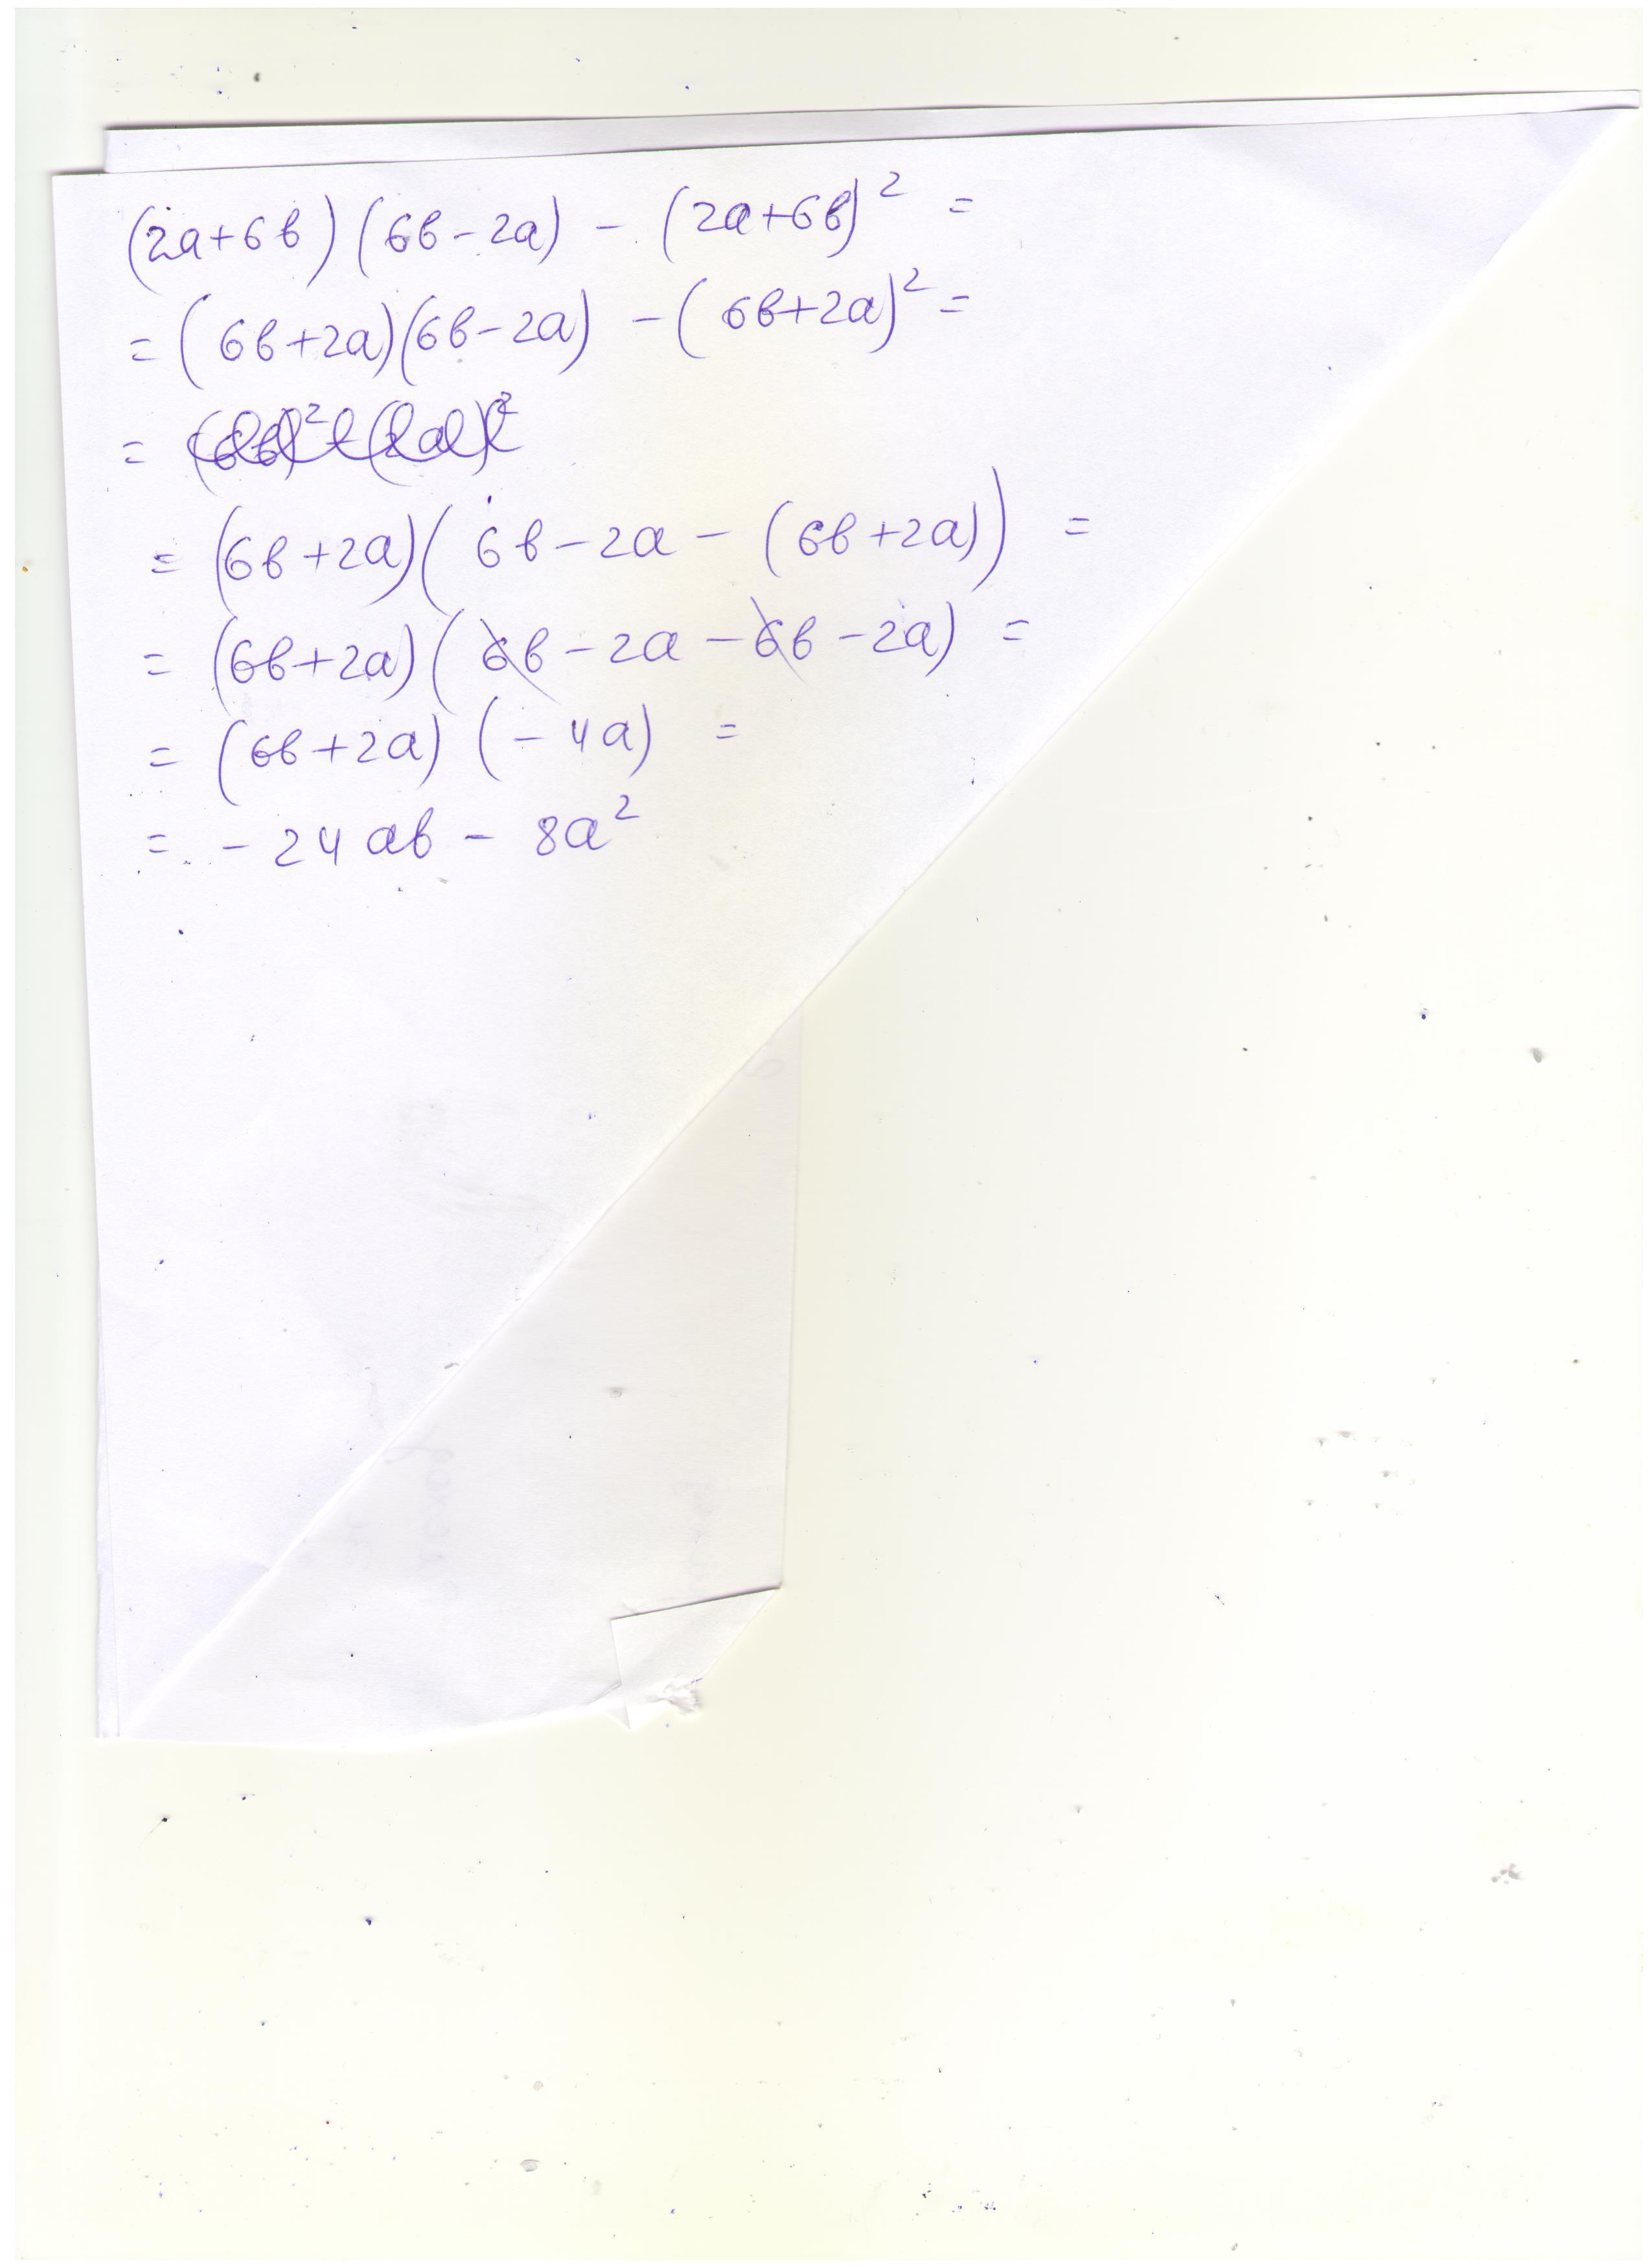 (2a+6b)(6b-2a) - (2a+6b)² =
= (6b+2a)(6b-2a) - (6b+2a)² =
=
= (6b+2a)(6b-2a-(6b+2a)) =
= (6b+2a)(6b-2a-6b-2a) =
= (6b+2a)(-4a) =
= -24ab - 8a²